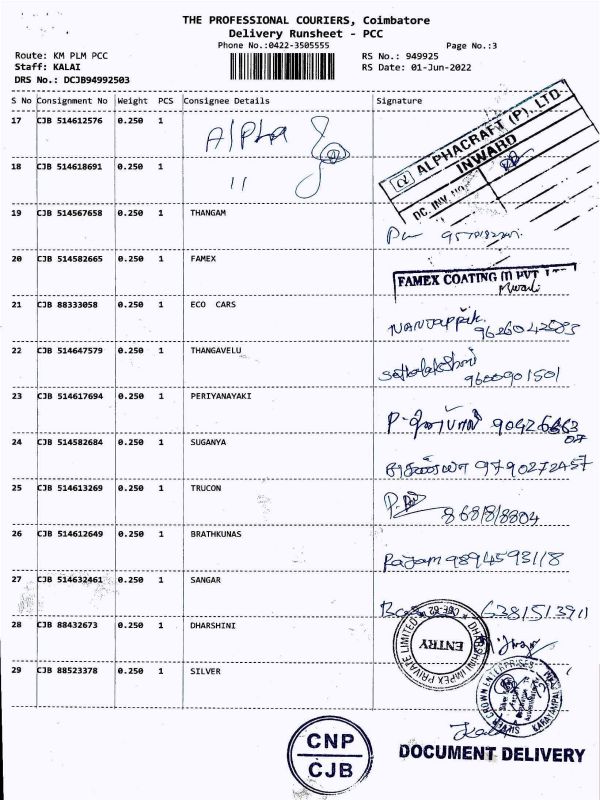 THE PROFESSIONAL COURIERS, Coimbatore
Delivery Runsheet - PCC
Phone No.:0422-3505555
Page No.:3
Route: KM PLM PCC
RS No.: 949925
Staff: KALAI
RS Date: 01-Jun-2022
DRS No.: DCJB94992503
S No Consignment No Weight PCS Consignee Details Signature
17 CJB 514612576 0.250 1 Alpha
α ALPHACRAFT (P). LTD.
INWARD
DC. INV. NO.
18 CJB 514618691 0.250 1 11
19 CJB 514567658 0.250 1 THANGAM
20 CJB 514582665 0.250 1 FAMEX
FAMEX COATING (I) PVT
21 CJB 88333058 0.250 1 ECO CARS
9626042583
22 CJB 514647579 0.250 1 THANGAVELU
9600901501
23 CJB 514617694 0.250 1 PERIYANAYAKI
24 CJB 514582684 0.250 1 SUGANYA
9790272457
25 CJB 514613269 0.250 1 TRUCON
8681818804
26 CJB 514612649 0.250 1 BRATHKUNAS
Rajam 9894593118
27 CJB 514632461 0.250 1 SANGAR
6381513911
28 CJB 88432673 0.250 1 DHARSHINI
DHARSHINI IMPEX PRIVATE LIMITED
CBE-62
ENTRY
29 CJB 88523378 0.250 1 SILVER
SILVER CROWN ENTERPRISES
CNP
CJB
DOCUMENT DELIVERY